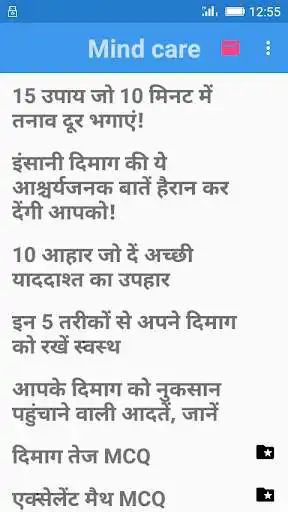 12:55
Mind care
15 उपाय जो 10 मिनट में
तनाव दूर भगाएं!
इंसानी दिमाग की ये
आश्चर्यजनक बातें हैरान कर
देंगी आपको!
10 आहार जो दें अच्छी
याददाश्त का उपहार
इन 5 तरीकों से अपने दिमाग
को रखें स्वस्थ
आपके दिमाग को नुकसान
पहुंचाने वाली आदतें, जानें
दिमाग तेज MCQ
एक्सेलेंट मैथ MCQ